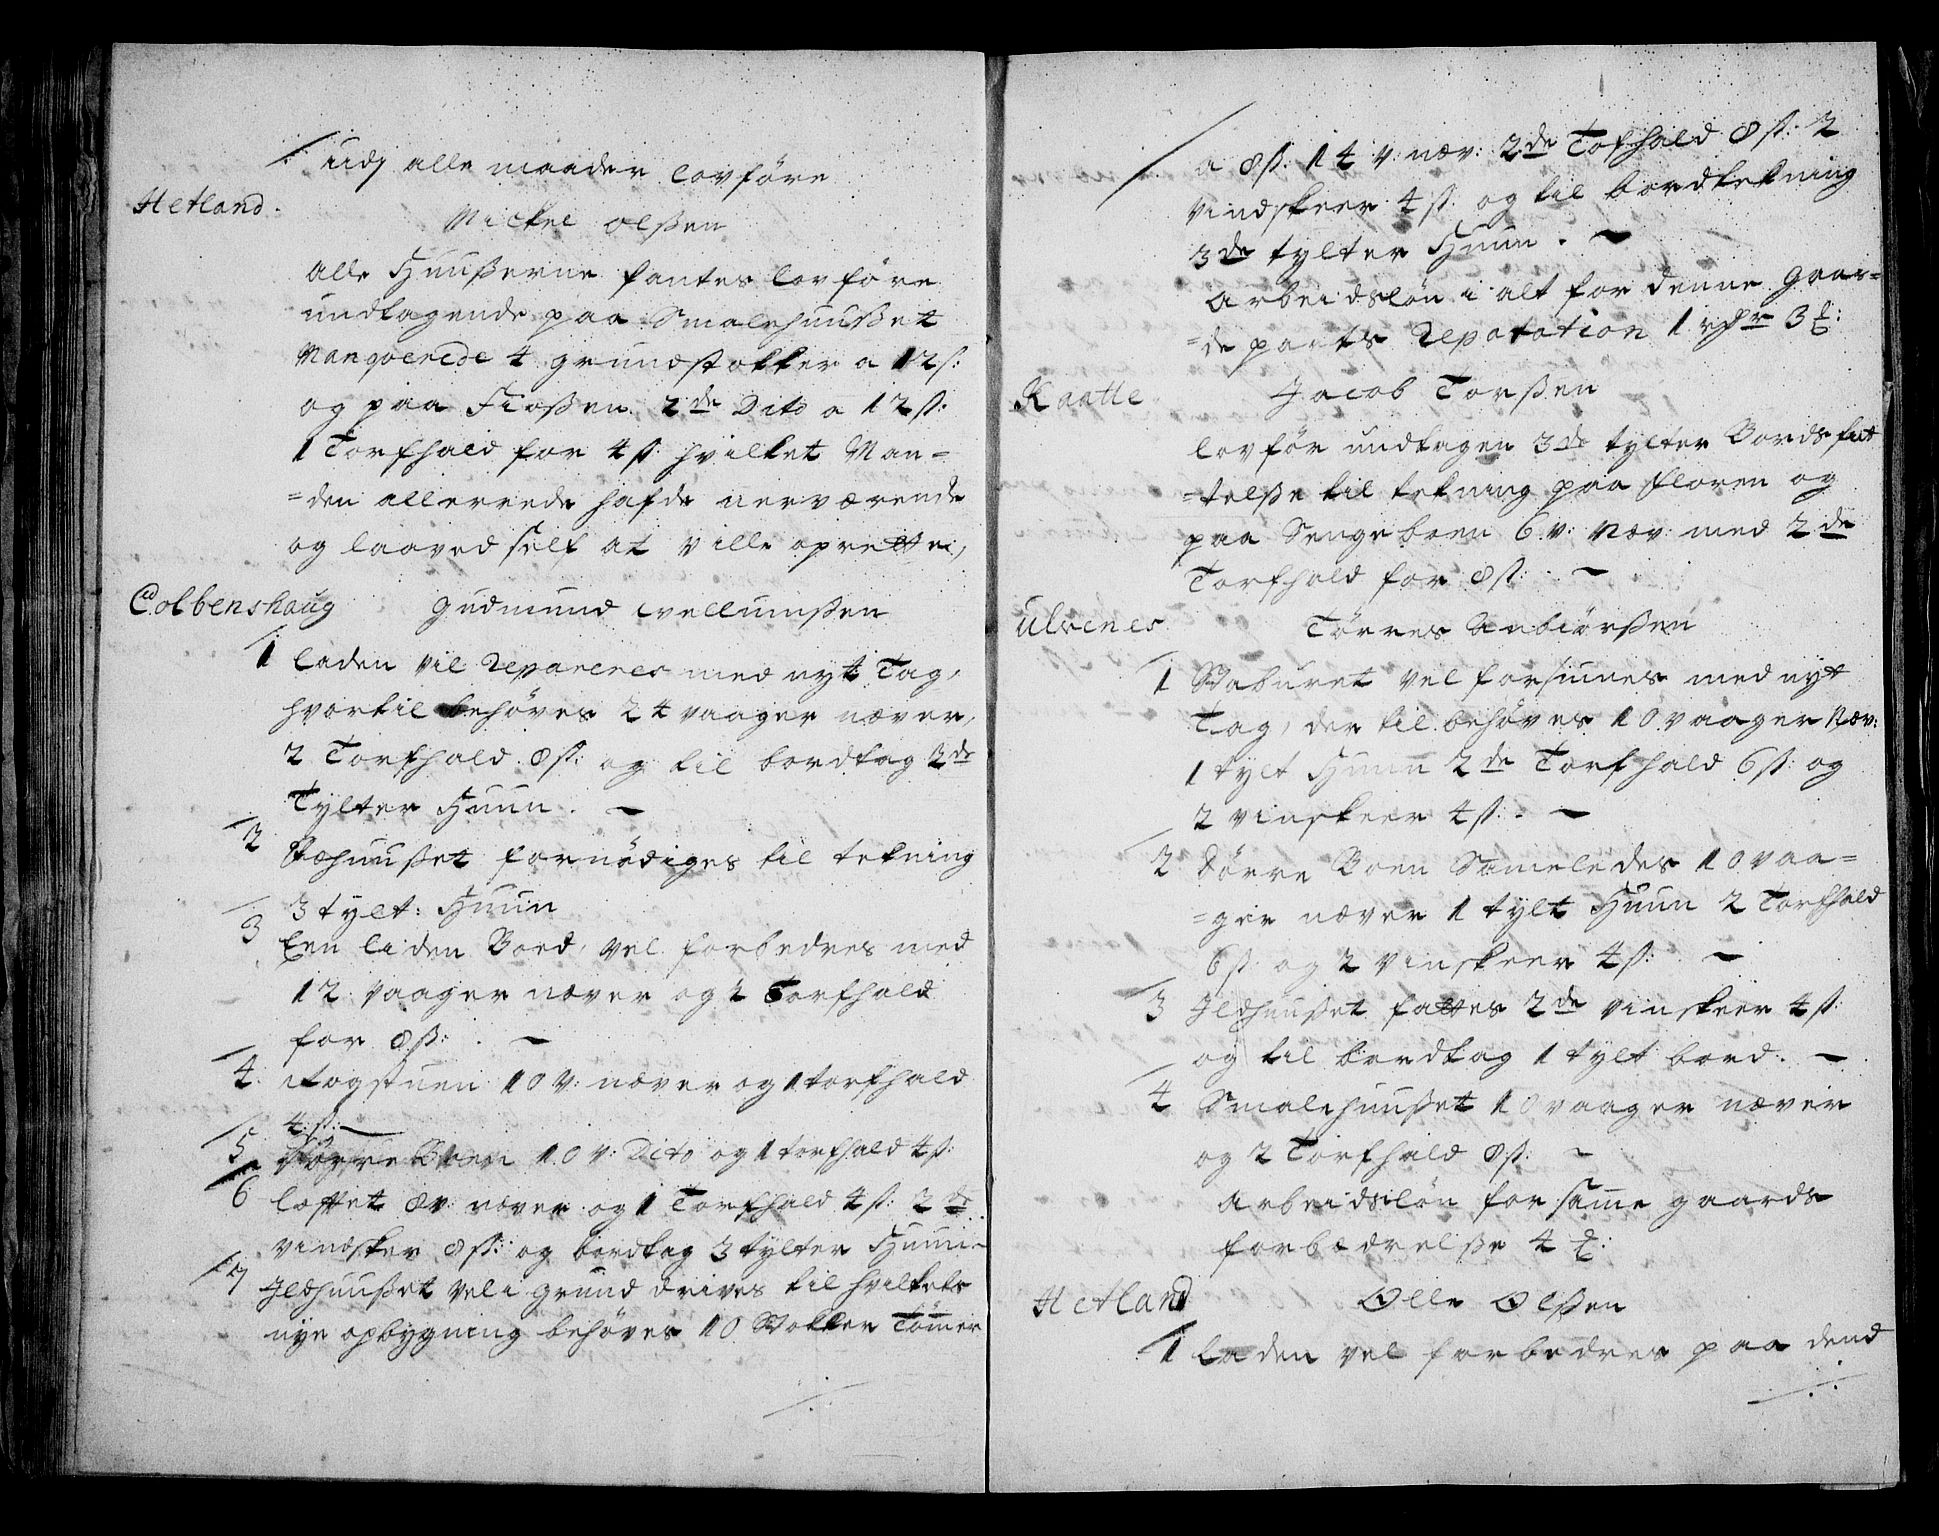 udj alle maader lovføre
Hetland.
Mickel Olßen
Alle Huußerne fantes lovføre
undtagende paa Smalehuußet
Manqverede 4 grundstokker a 12 s:
og paa Fioßen 2de Dito a 12 ß:
1 Torfhald for 4 ß hvilket Man=
=den allerrede hafde nerværende
og laaved self at ville oprette,
Colbenshaug Gudmund Vellumßen
1 Laden vil Repareres med nyt Tag,
hvortil behøves 24 vaager næver,
2 Torfhald 8 ß: og til bordtag 3de
Tylter Huun. —
2 Fæhuußet fornødiges til tekning
3 tylt: Huun
3 Een liden Boed, vel forbedres med
12 vaager næver og 2 Torfhald
for 8 ß: . —
4 Røgstuen 10 v: næver og 1 torfhald
4 ß: —
5 Større Boen 10 v: Dito og 1 torfhald 4 ß:
6 Løftet 8 v: næver og 1 Torfhald 4 ß: 2de
vindsker 8 ß: og bordtag 3 tylter Huun
7 Ildhuußet vel i grund drives til hvilkets
nye opbygning behøves 10 Stokker Tømer
a 8 ß: 14 v: næv: 2de Tofhald 8 ß: 2
vindskeer 4 ß og til bordtekning
3de tylter Huun. —
Arbeidsløn i alt for denne gaar=
=de parts Reparation 1 rdr 3 #:
Kaatle Jacob Torßen
lovfør undtagen 3de tylter Bords fat
=telße til tekning paa floren og
paa Sengeboen 6 v: næv: med 2de
Torfhald for 8 ß: —
Ulvenes Tørres Anbiørßen
1 Staburet vel forsiunes med nyt
Tag, der til behøves 10 vaager næv:
1 tylt Huun 2de Torfhald 6 ß: og
2 vinskeer 4 ß: —
2 Dørre Boen Sameledes 10 vaa=
=ger næver 1 tylt Huun 2 Torfhald
6 ß og 2 vinskeer 4 ß: —
3 Ildhuußet fattes 2de vinskeer 4 ß:
og til bordtag 1 tylt bord. —
4 Smalehuußet 10 vaager næver
og 2 Torfhald 8 ß: —
Arbeidsløn for same gaards
forbædrelße 4 #:
Hetland Olle Olßen
1 Laden vel forbedres paa dend